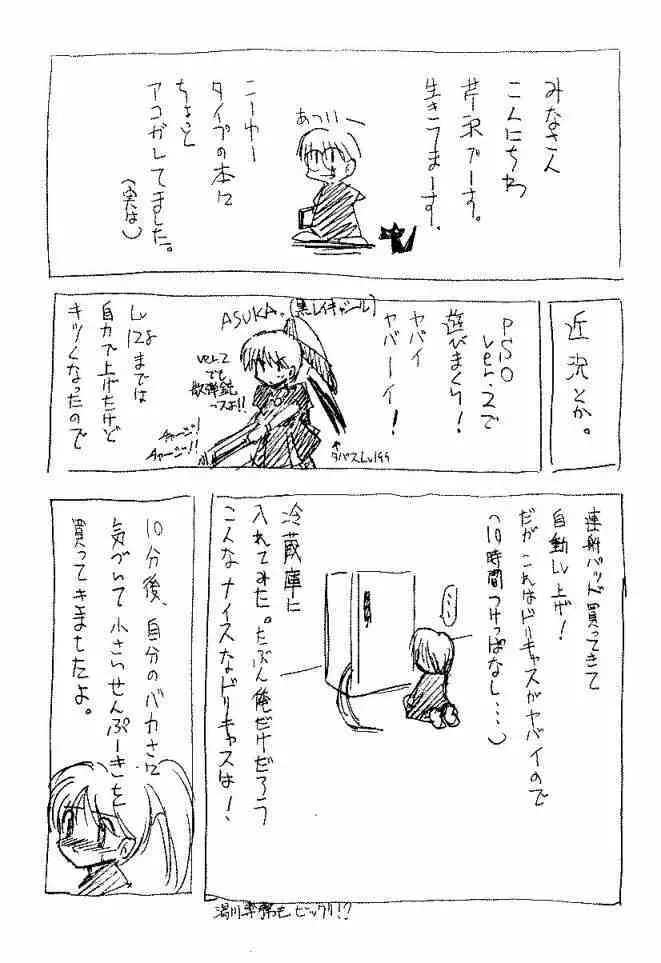 みなさん
こんにちわ
芹沢でーす。
生きてまーす。
あつい〜
こーゆー
タイプの本に
ちょっと
アコガレてました。
(実は)
近況とか。
PSO
ver.2で
遊びまくり!
ヤバイ
ヤバーイ!
ASUKA.
[黒レイキャシール]
ver.2
でも
散弾銃
っスよ!!
チャージ!
チャージ!!
Lv
128までは
自力で上げたけど
キツくなったので
連射パッド買ってきて
自動Lv上げ!
だがこれはドリキャスがヤバイので
(10時間つけっぱなし…)
・・・
冷蔵庫に
入れてみた。たぶん俺だけだろう
こんなナイスなドリキャスは!
湯川専務もビックリ!?
10分後、自分のバカさに
気づいて小さいせんぷーきを
買ってきましたよ。